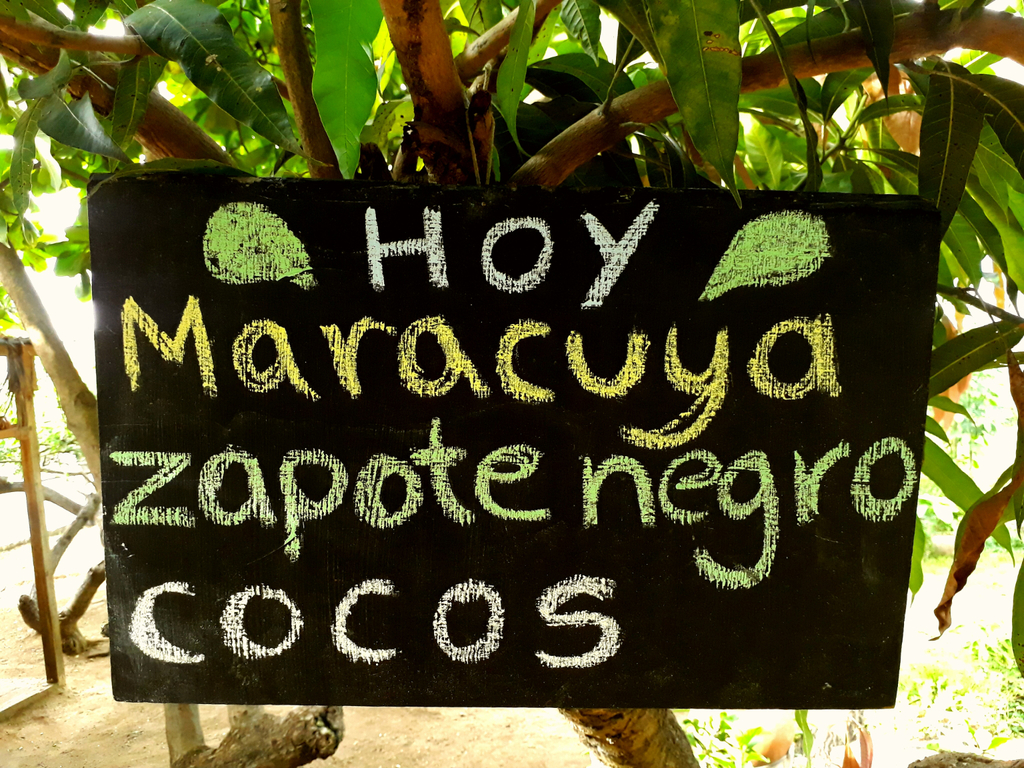 HOY
Maracuya
zapote negro
cocos